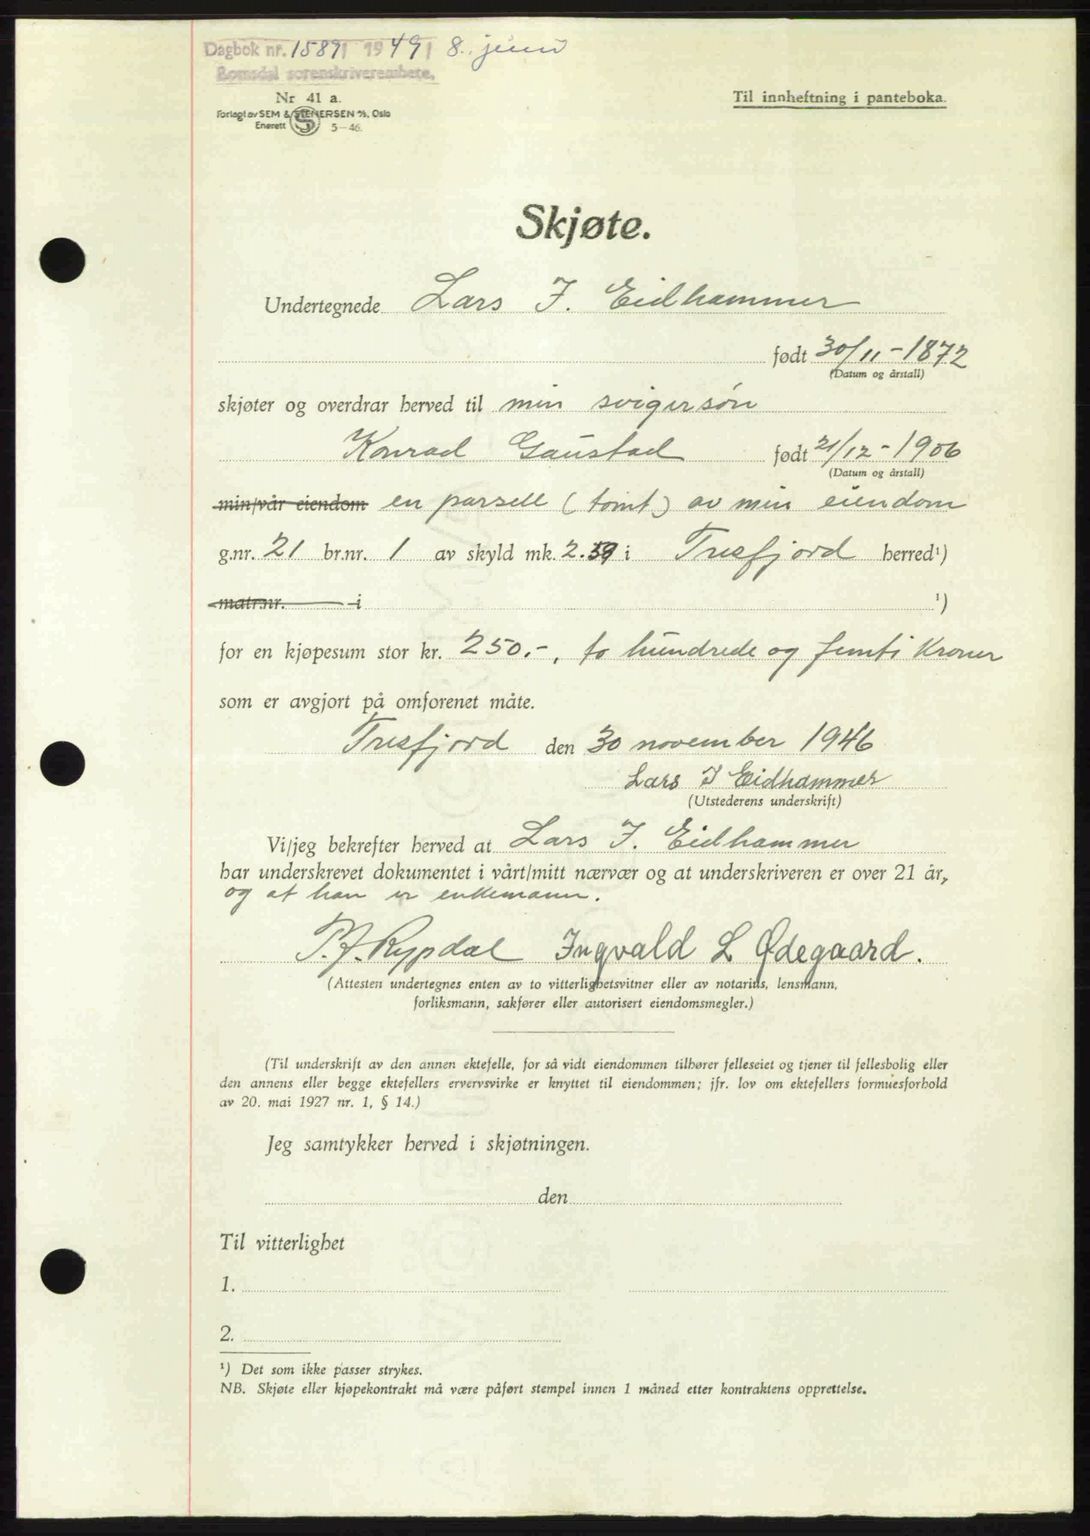 Dagbok nr. 1589 1949 8. juni
Romsdal sorenskriverembete.
Nr 41 a.
Forlagt av SEM & STENERSEN A/S, Oslo
Enerett 5-46.
Til innheftning i panteboka.
Skjøte.
Undertegnede Lars J. Eidhammer
født 30/11-1872
(Datum og årstall)
skjøter og overdrar herved til min svigersøn
Konrad Gaustad født 21/12-1906
(Datum og årstall)
min/vår eiendom en parsell (tomt) av min eiendom
g.nr. 21 br.nr. 1 av skyld mk. 2.59 i Tresfjord herred¹)
matr.nr. i ¹)
for en kjøpesum stor kr. 250.-, to hundrede og femti Kroner
som er avgjort på omforenet måte.
Tresfjord den 30 november 1946
Lars J Eidhammer
(Utstederens underskrift)
Vi/jeg bekrefter herved at Lars J. Eidhammer
har underskrevet dokumentet i vårt/mitt nærvær og at underskriveren er over 21 år,
og at han er enkemann.
P. J. Rypdal Ingvald L Ødegaard.
(Attesten undertegnes enten av to vitterlighetsvitner eller av notarius, lensmann,
forliksmann, sakfører eller autorisert eiendomsmegler.)
(Til underskrift av den annen ektefelle, for så vidt eiendommen tilhører felleseiet og tjener til fellesbolig eller
den annens eller begge ektefellers ervervsvirke er knyttet til eiendommen; jfr. lov om ektefellers formuesforhold
av 20. mai 1927 nr. 1, § 14.)
Jeg samtykker herved i skjøtningen.
den
Til vitterlighet
1.
2.
¹) Det som ikke passer strykes.
NB. Skjøte eller kjøpekontrakt må være påført stempel innen 1 måned etter kontraktens opprettelse.